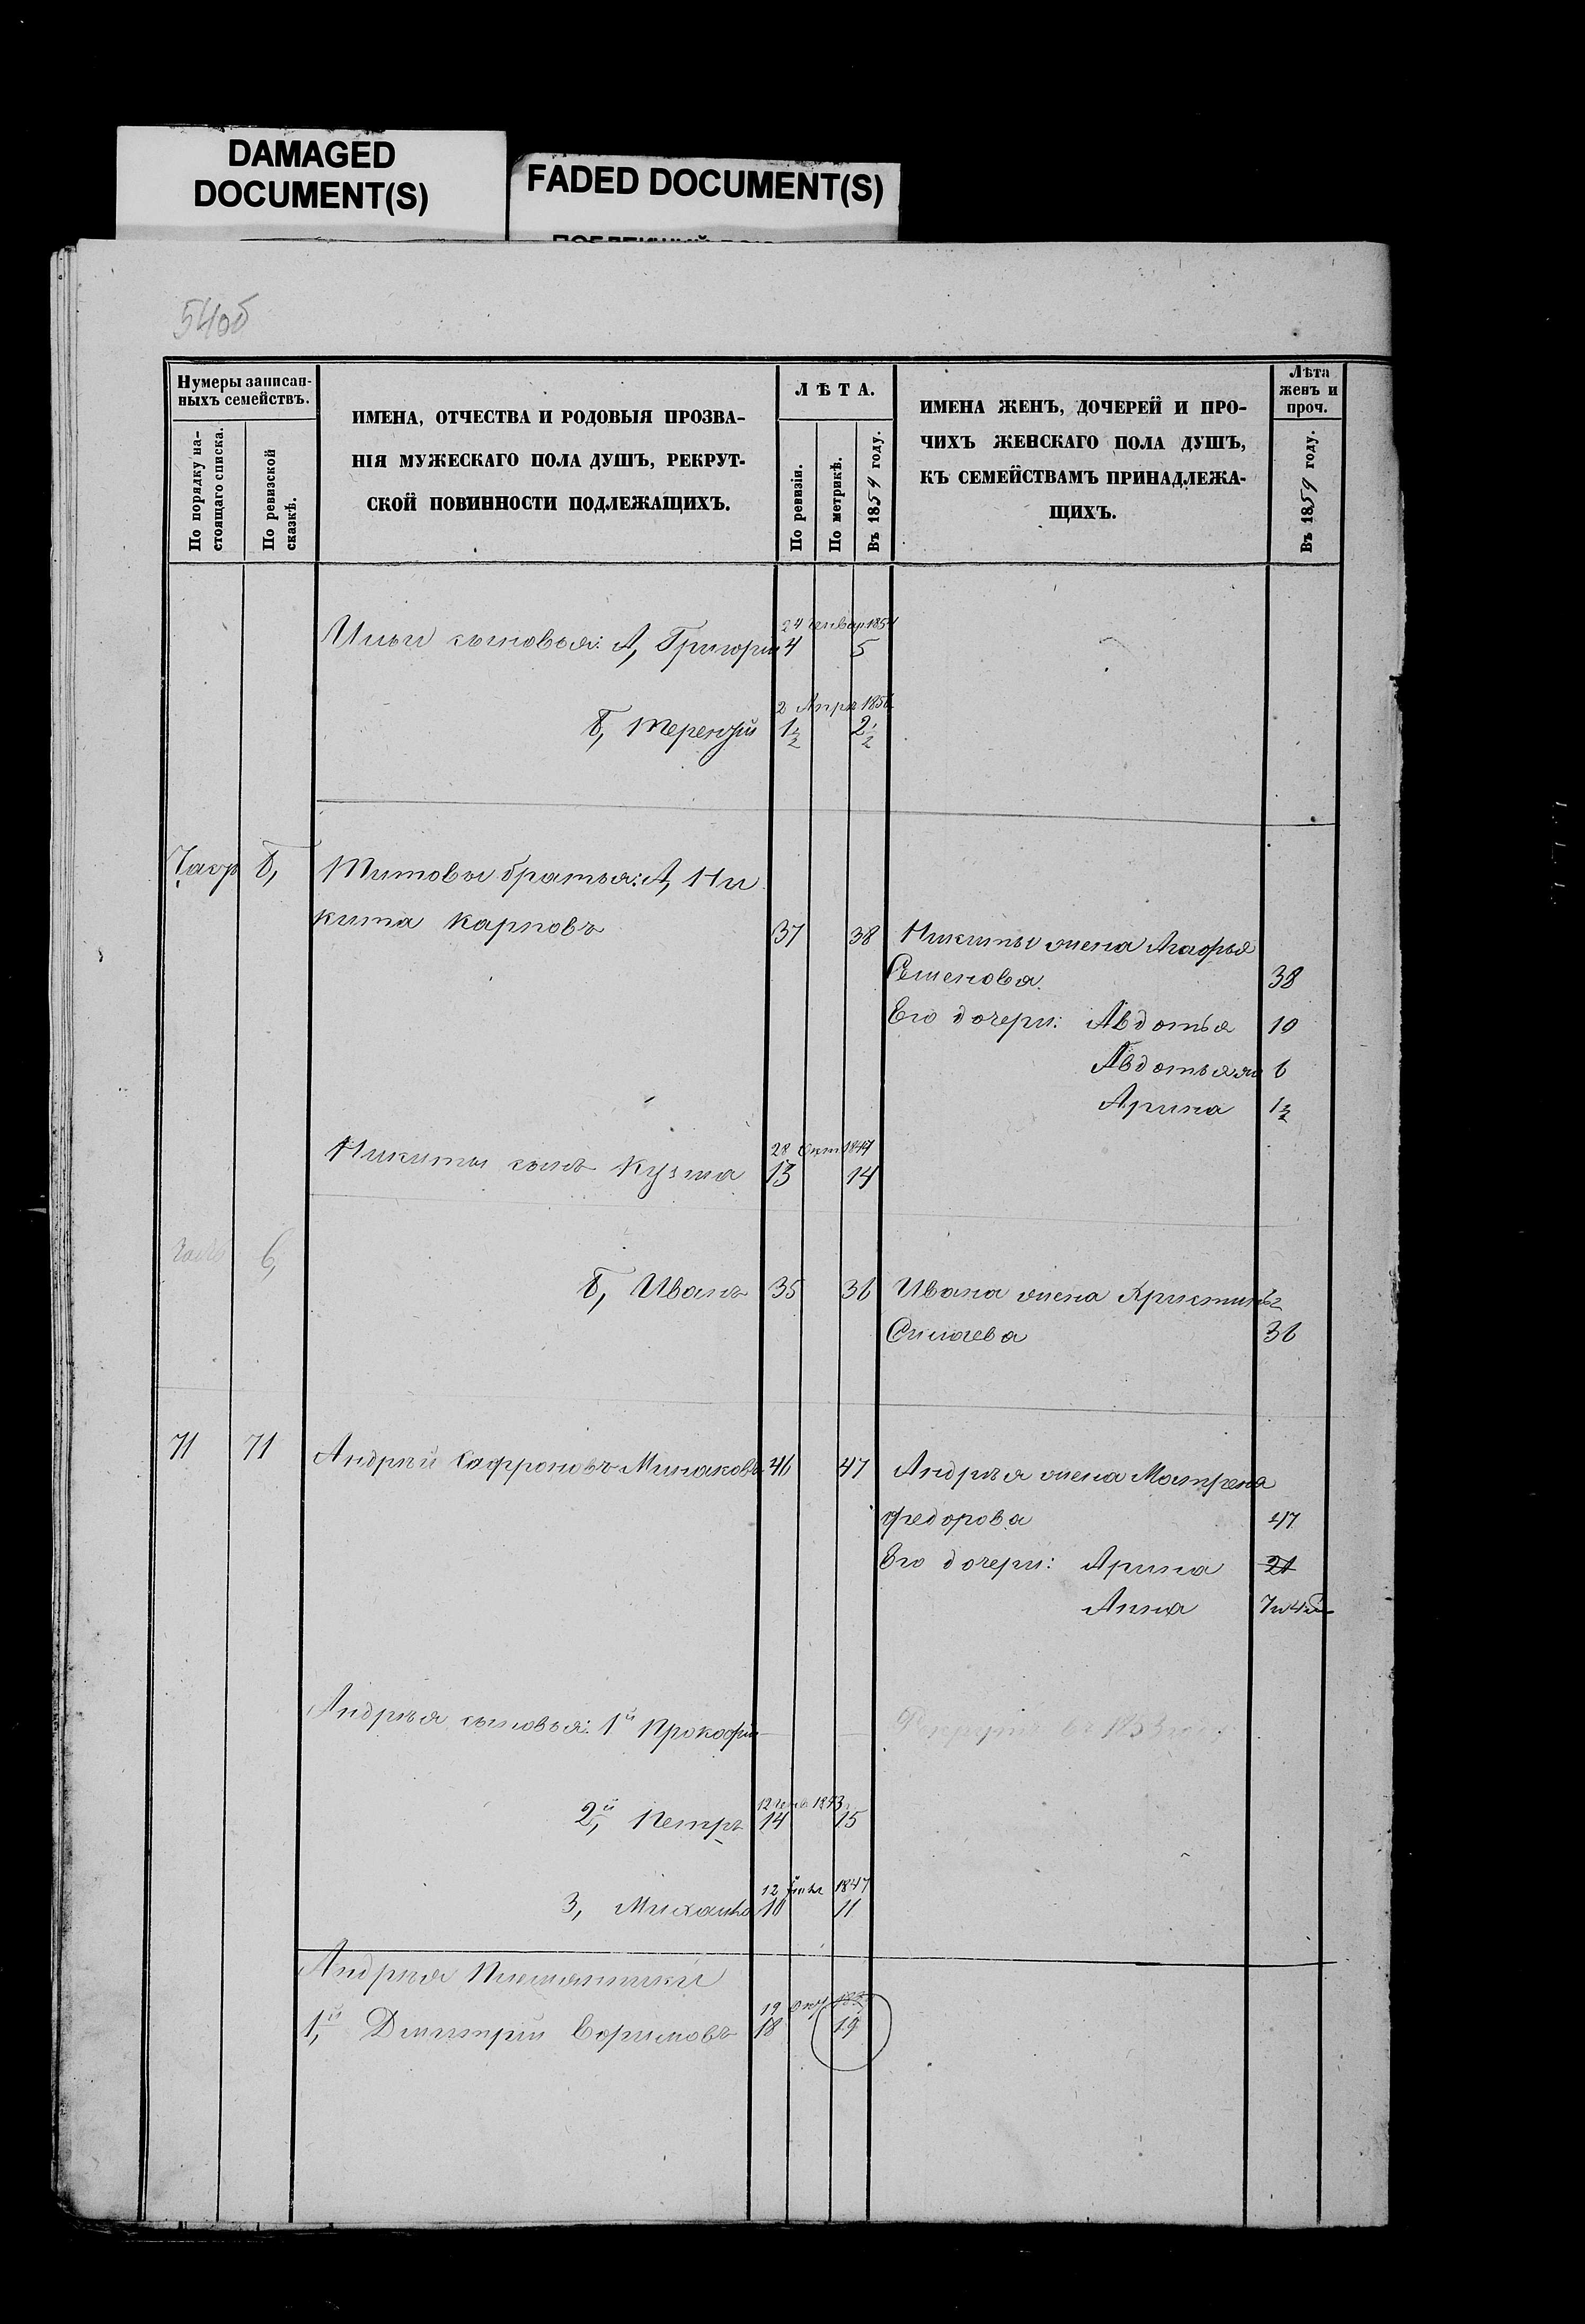 DAMAGED
DOCUMENT(S)
FADED DOCUMENT(S)
54об
Нумеры записан-
ныхъ семействъ.
По порядку на-
стоящаго списка.
По ревизской
сказкѣ.
ИМЕНА, ОТЧЕСТВА И РОДОВЫЯ ПРОЗВА-
НІЯ МУЖЕСКАГО ПОЛА ДУШЪ, РЕКРУТ-
СКОЙ ПОВИННОСТИ ПОДЛЕЖАЩИХЪ.
ЛѢТА.
По ревизіи.
По метрикѣ.
Въ 1859 году.
ИМЕНА ЖЕНЪ, ДОЧЕРЕЙ И ПРО-
ЧИХЪ ЖЕНСКАГО ПОЛА ДУШЪ,
КЪ СЕМЕЙСТВАМЪ ПРИНАДЛЕЖА-
ЩИХЪ.
Лѣта
женъ и
проч.
Въ 1859 году.
24 Январ 1854
Ильи сыновья: А, Григорій 4 5
2 Апрѣ 1856
б, Терентій 1½ 2½
б, Титовы братья: А, Ни
кита Карповъ 37 38 Никиты жена Агафья
Семенова 38
Его дочери: Авдотья 10
Авдотья 6
Арина 1½
28 Окт
Никиты сынъ Кузма 13 14
б,
б, Иванъ 35 36 Ивана жена Кристинья
Силаева 36
71 71 Андрей Сафроновъ Минаковъ 46 47 Андрея жена Матрена
Федорова 47
Его дочери: Арина 21
Анна
Андрея сыновья: 1й Прокофій въ 1853
12 1843
2й, Петръ 14 15
12 1847
3, Михайла 10 11
Андрея Племянники
19 Окт
1й, Дмитрій 18 19